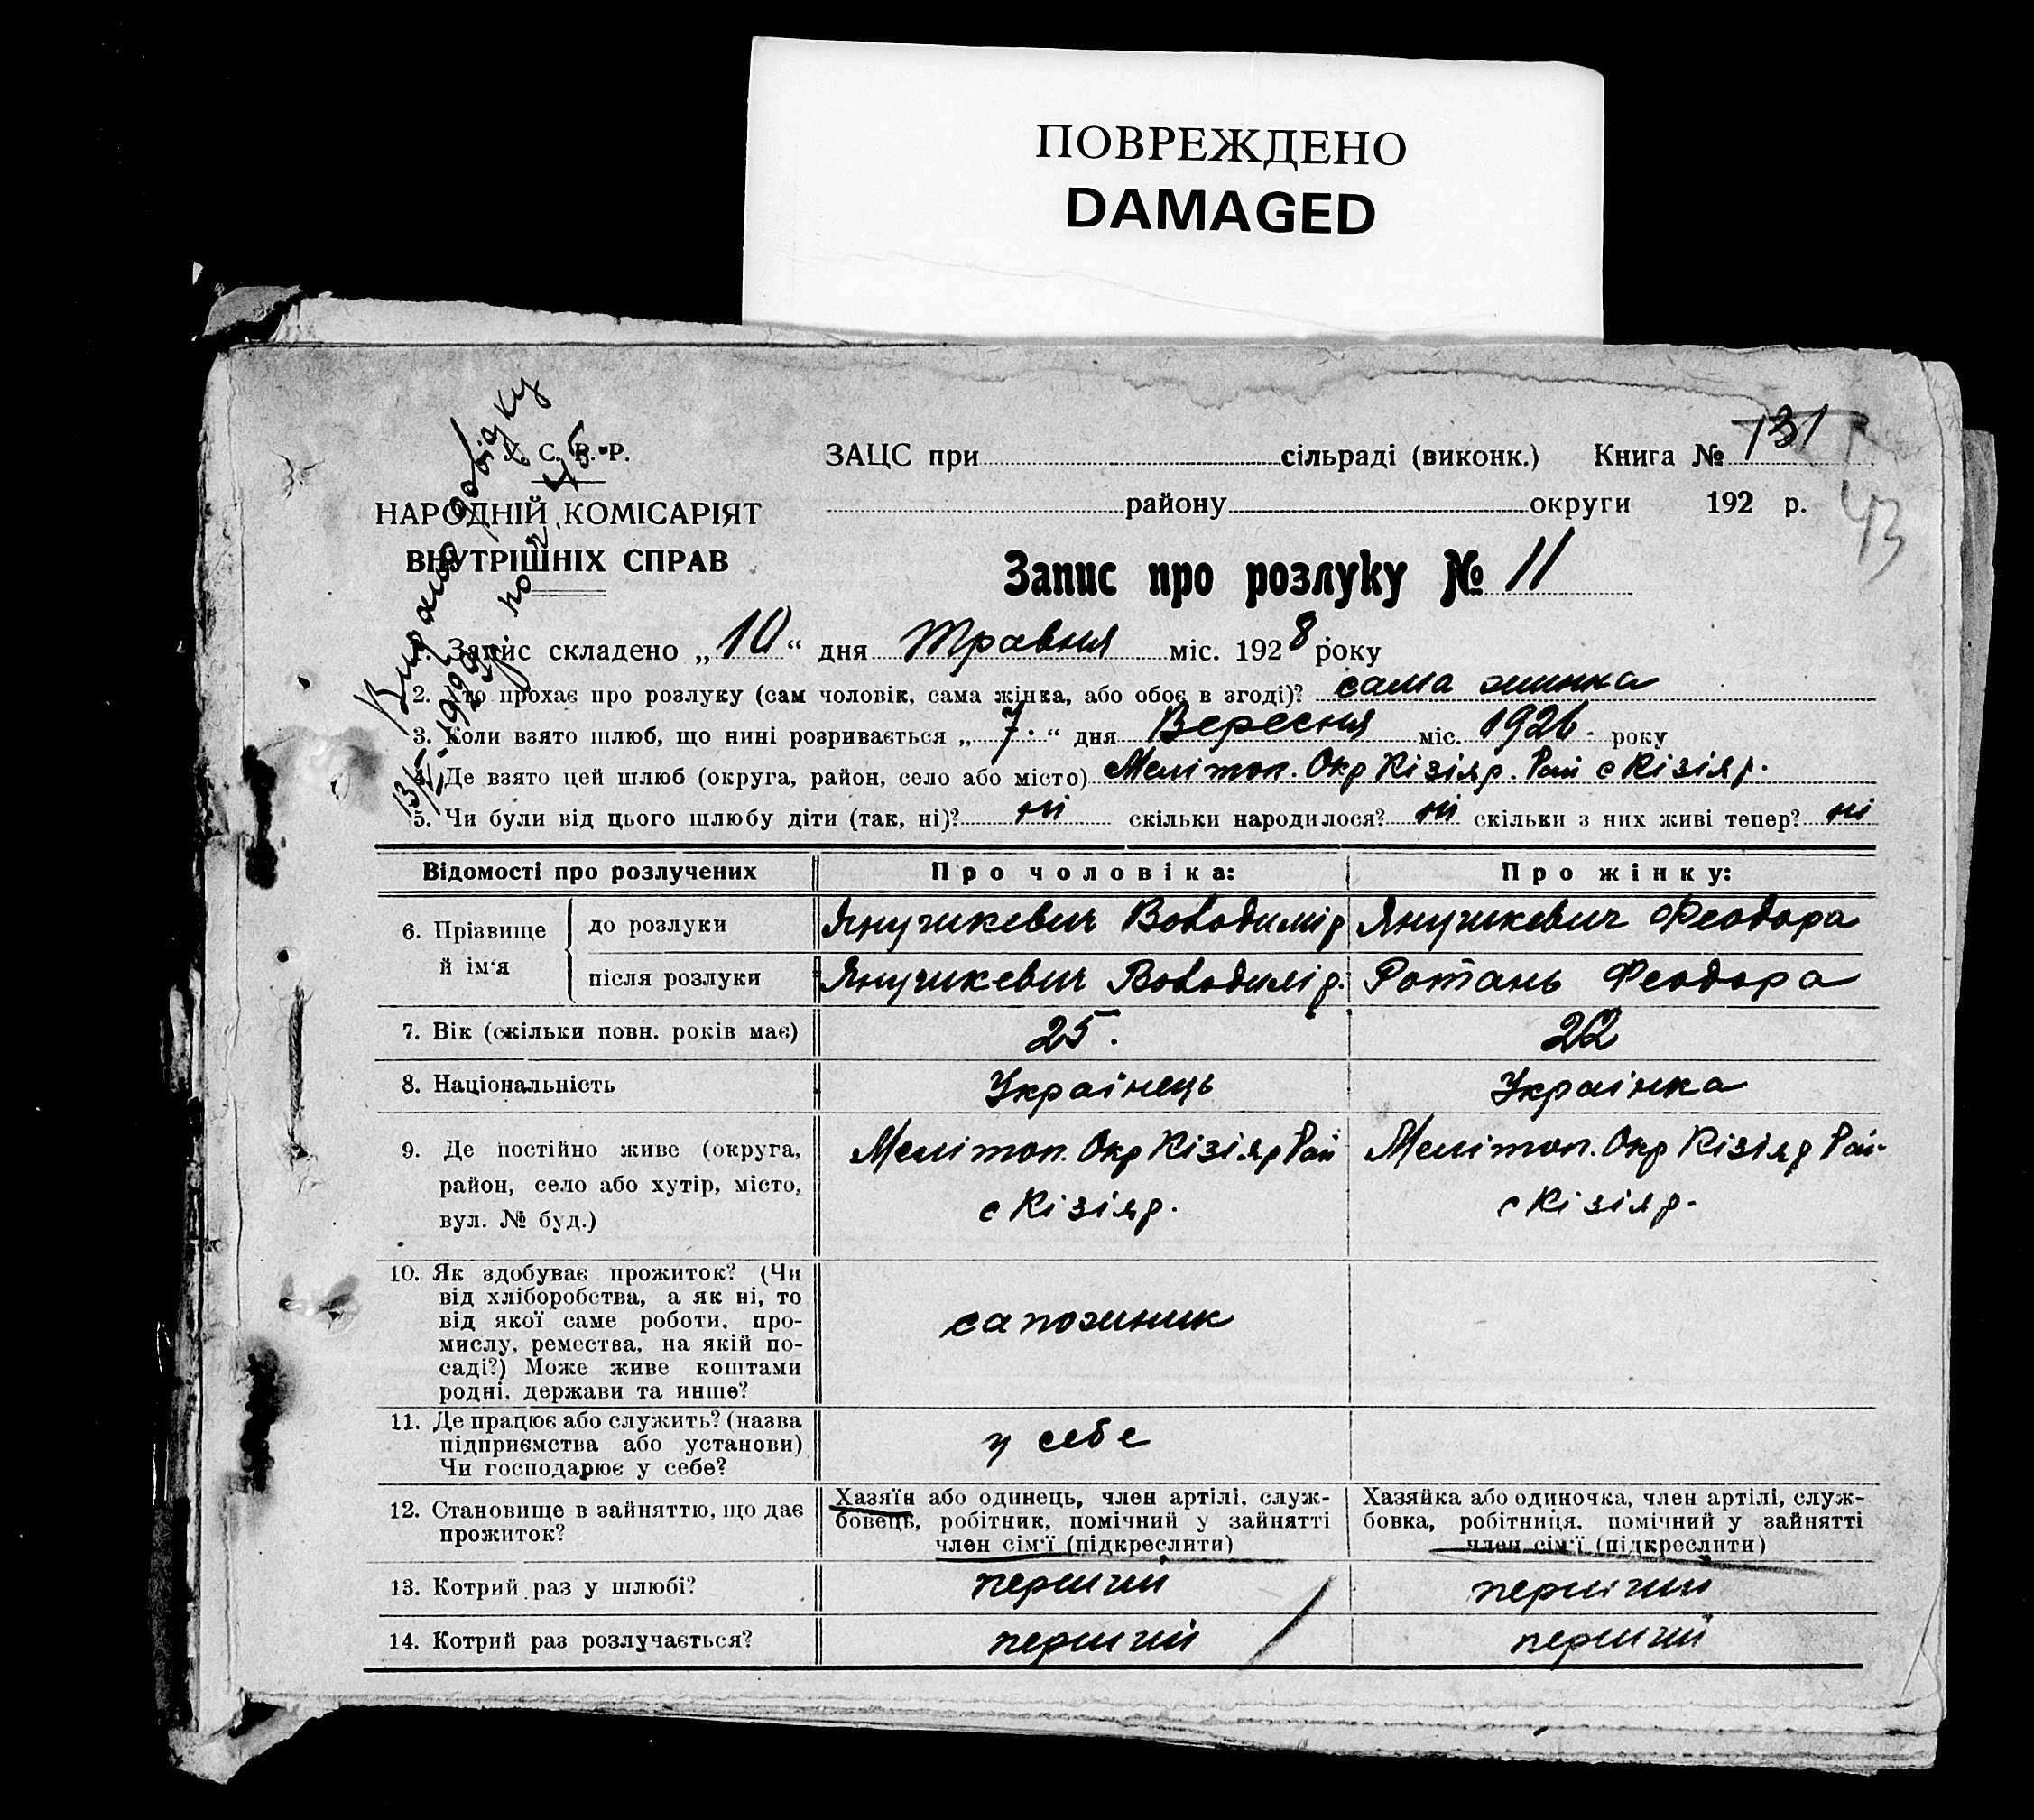 ПОВРЕЖДЕНО
DAMAGED
У. С. Р. Р.
НАРОДНІЙ КОМІСАРІЯТ
ВНУТРІШНІХ СПРАВ
ЗАЦС при сільраді (виконк.) Книга № 131
району округи 192 р.
43
Запис про розлуку № 11
Видано довідку
по
1. Запис складено „10“ дня Травня міс. 1928 року
2. Хто прохає про розлуку (сам чоловік, сама жінка, або обоє в згоді)? сама жинка
3. Коли взято шлюб, що нині розривається „7.“ дня Вересня міс. 1926. року
4. Де взято цей шлюб (округа, район, село або місто) Мелітоп. Окр Кізіяр. Рай с Кізіяр.
5. Чи були від цього шлюбу діти (так, ні)? ні скільки народилося? ні скільки з них живі тепер? ні
Відомості про розлучених Про чоловіка: Про жінку:
6. Прізвище й ім‘я до розлуки Янушкевич Володимір Янушкевич Феодора
після розлуки Янушкевич Володимір. Ротань Феодора
7. Вік (скільки повн. років має) 25. 22
8. Національність Українець Українка
9. Де постійно живе (округа, Мелітоп. Окр Кізіяр Рай Мелітоп. Окр Кізіяр Рай
район, село або хутір, місто, с Кізіяр. с Кізіяр.
вул. № буд.)
10. Як здобуває прожиток? (Чи
від хліборобства, а як ні, то
від якої саме роботи, про-
мислу, ремества, на якій по-
саді?) Може живе коштами
родні, держави та инше?
сапожник
11. Де працює або служить? (назва
підприємства або установи)
Чи господарює у себе?
у себе
12. Становище в зайняттю, що дає
прожиток?
Хазяїн або одинець, член артілі, служ-
бовець, робітник, помічний у зайнятті
член сім‘ї (підкреслити)
Хазяйка або одиночка, член артілі, служ-
бовка, робітниця, помічний у зайнятті
член сім‘ї (підкреслити)
13. Котрий раз у шлюбі? перший перший
14. Котрий раз розлучається? перший перший